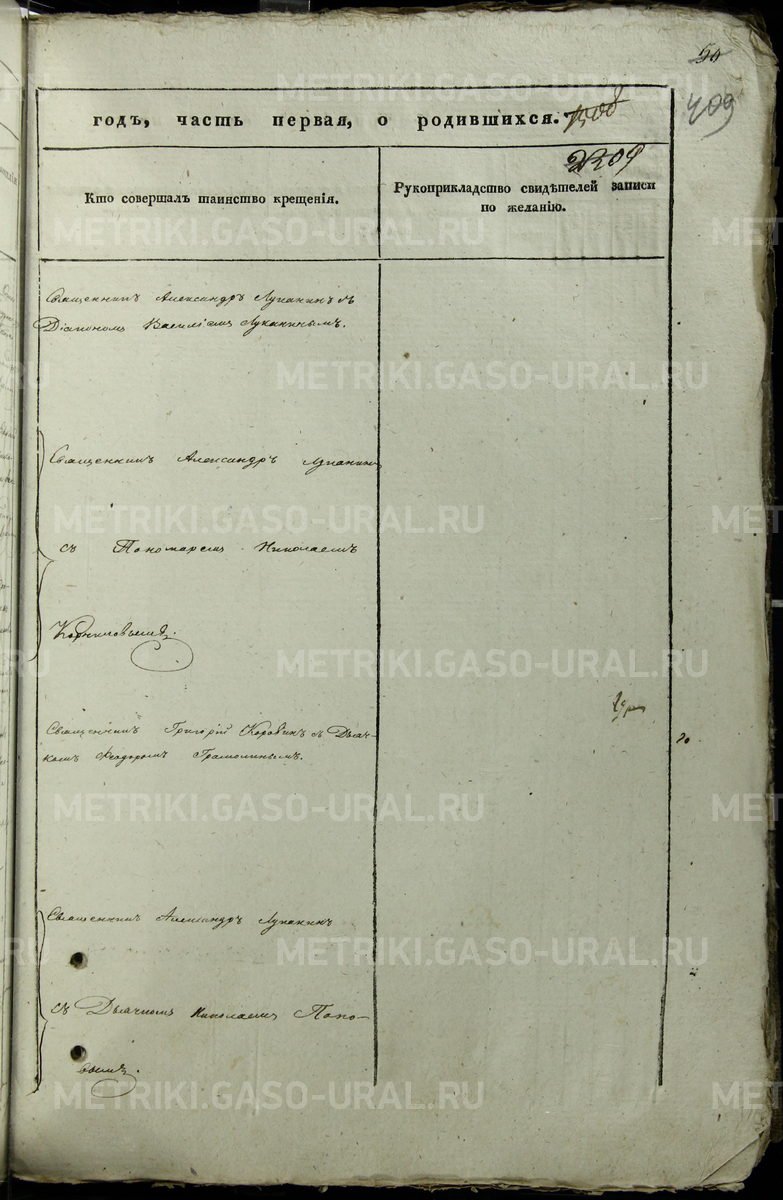 50
409
годъ, часть первая, о родившихся.
2209
Кто совершалъ таинство крещенія.
Рукоприкладство свидѣтелей записи
по желанію.
Священникъ Александръ Луканинъ съ
Діакономъ Василіемъ Луканинымъ.
Священникъ Александръ Луканинъ
съ Пономаремъ Николаемъ
Корниловымъ.
Священникъ Григорій Коровинъ съ Дьяч-
комъ Феодоромъ
20
Священникъ Александръ Луканинъ
съ Дьячкомъ Николаемъ Попо-
вымъ.
METRIKI.GASO-URAL.RU